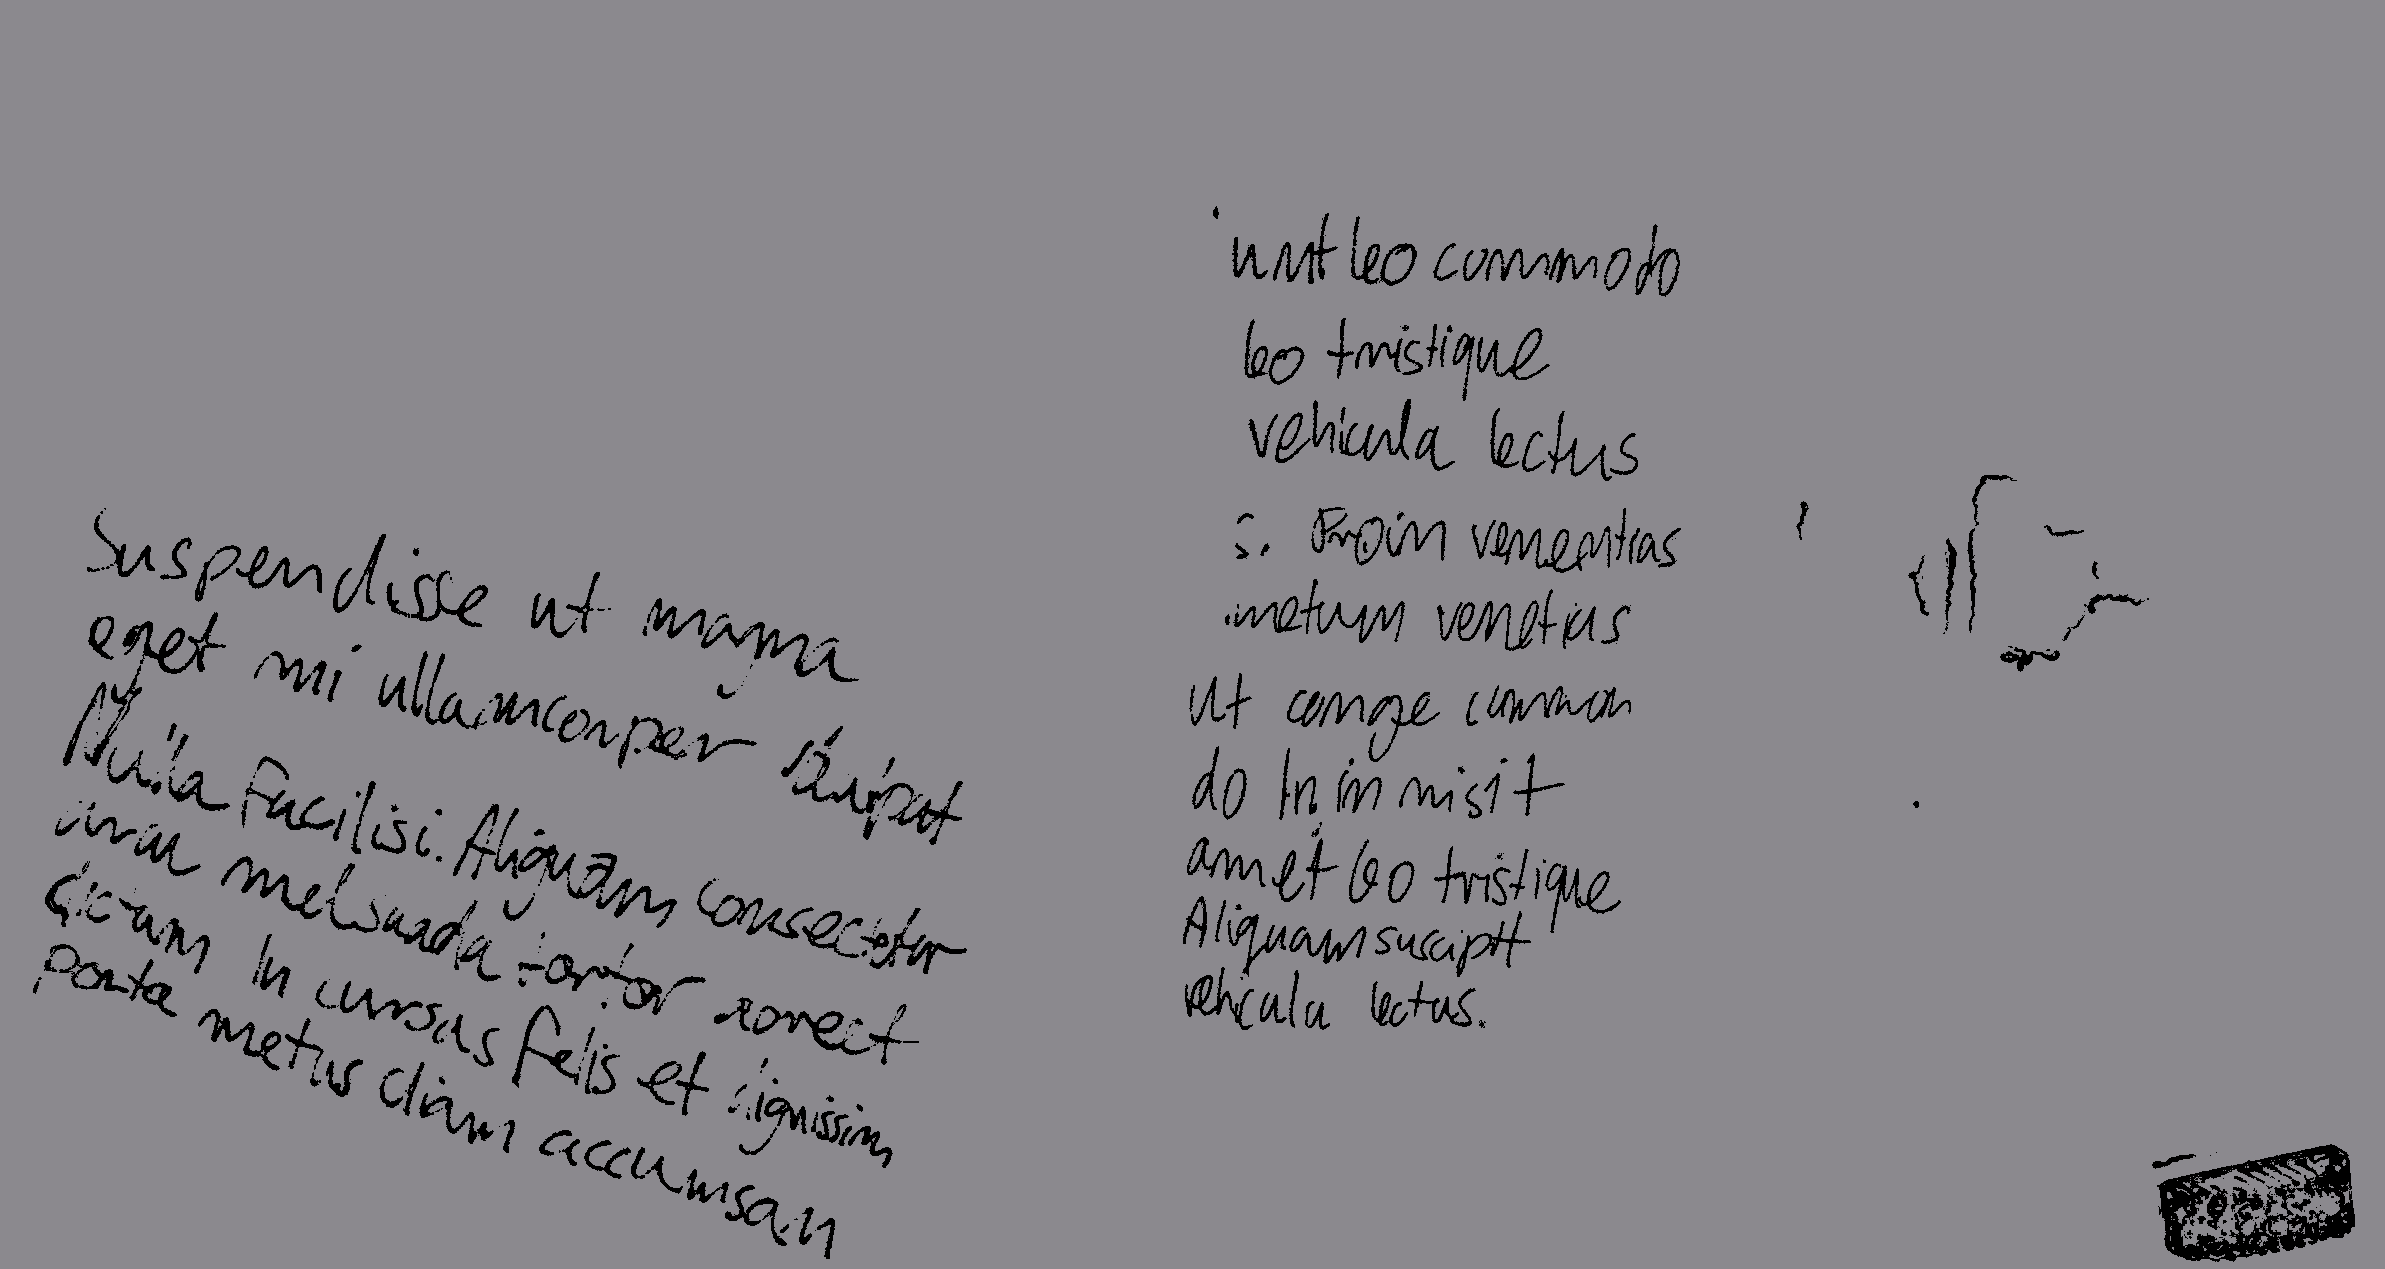 Suspendisse ut magna
eget mi ullamcorper
Nulla Facilisi. Aliquam consectetur
tortor
dictum In cursus felis et dignissim
Porta metus accumsan
leo commodo
leo tristique
vehicula lectus
s. Proin
metum
ut conge common
do In in nisi t
amet leo tristique
Aliquam suscipit
vehicula lectus.